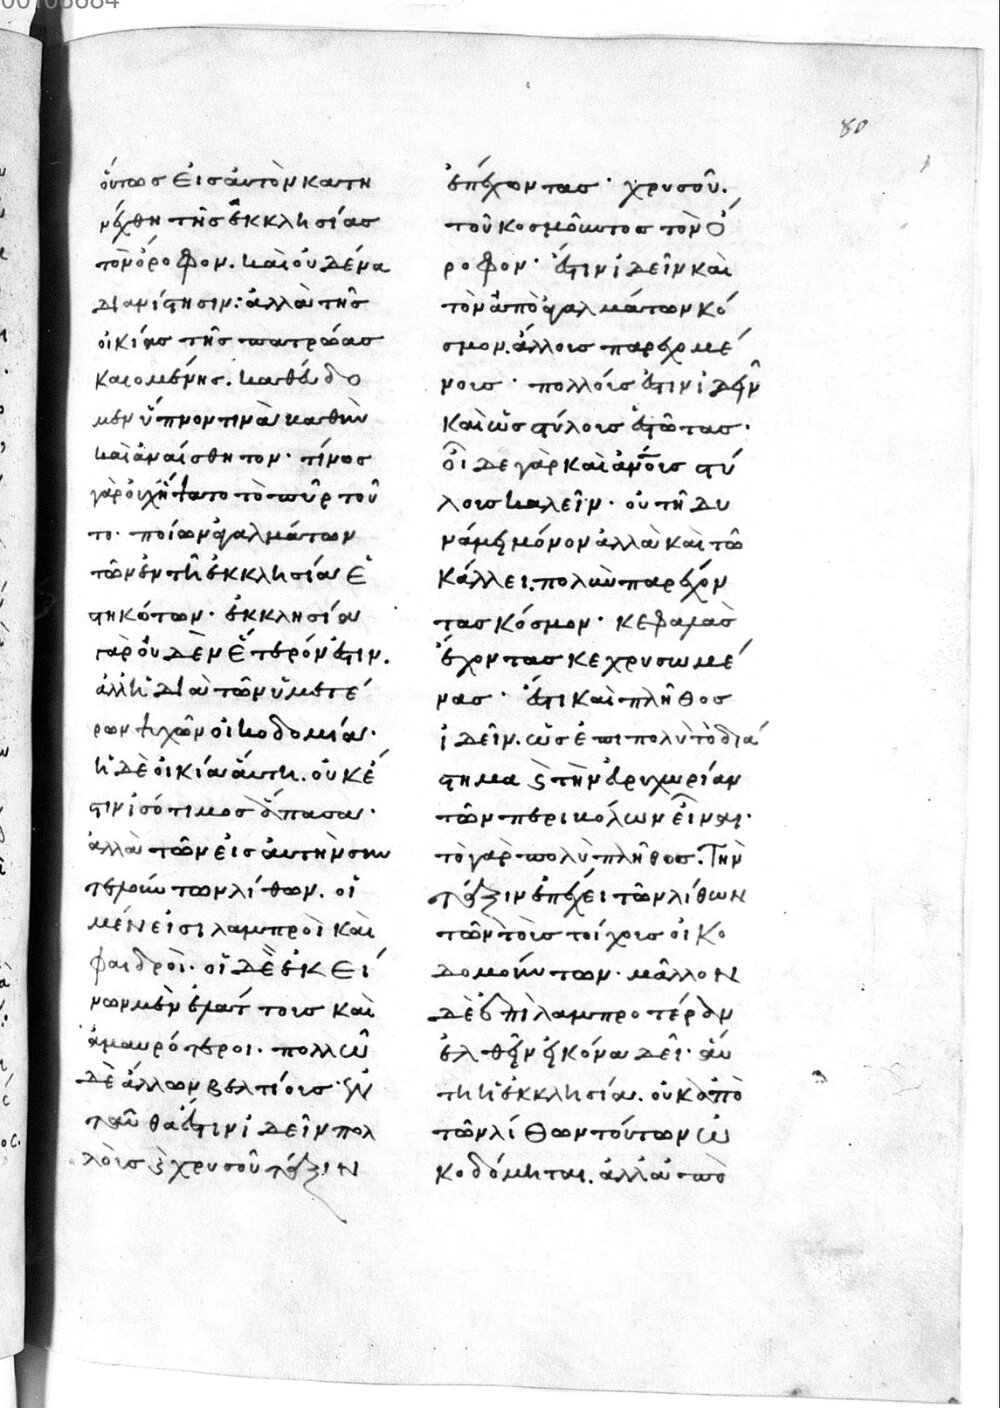 80
οὕτως εἰς αὐτὸν κατη
νέχθη τῆς ἐκκλησίας
τὸν ὄροφον. καὶ οὐδένα
διανίστησιν: ἀλλὰ τῆς
οἰκίας τῆς πατρώας
καιομένης. καθεύδο
μεν ὕπνον τινὰ βαθὺν
καὶ ἀναίσθητον· τίνος
γὰρ οὐχ ἥψατο τὸ πῦρ τοῦ
το· ποίων ἀγαλμάτων
τῶν ἐν τῆ ἐκκλησία ἑ
στηκότων· ἐκκλησία
γὰρ οὐδὲν ἕτερόν ἐστιν.
ἀλλ' ἡ διὰ τῶν ὑμετέ
ρων ψυχῶν οἰκοδομία·
ἡ δὲ οἰκία αὕτη. οὐκ ἔ
στιν ἰσότιμος ἅπασα·
ἀλλὰ τῶν εἰς αὐτὴν συν
τελούντων λίθων. οἱ
μέν εἰσι λαμπροὶ καὶ
φαιδροὶ· οἱ δὲ ἐκεί
νων μὲν ἐλάττους καὶ
ἀμαυρότεροι· πολλῶ
δὲ ἄλλων βελτίους· ἐν
ταῦθα ἐστιν ἰδεῖν πολ
λοὺς καὶ χρυσοῦ τάξιν
ἐπέχοντας· χρυσοῦ.
τοῦ κοσμοῦντος τὸν ὄ
ροφον· ἔστιν ἰδεῖν καὶ
τὸν ἀπὸ ἀγαλμάτων κό
σμον. ἄλλους παρεχομέ
νους· πολλοὺς ἔστιν ἰδεῖν
καὶ ὡς στύλους ἑστῶτας·
οἶδε γὰρ καὶ ἀνους στύ
λους καλεῖν· οὐ τῆ δυ
νάμει μόνον ἀλλὰ καὶ τῶ
κάλλει. πολὺν παρέχον
τας κόσμον· κεφαλὰς
ἔχοντας κεχρυσωμέ
νας· ἔστι καὶ πλῆθος
ἰδεῖν. ὡς ἐπιπολὺ τὸ διά
στημα καὶ τὴν εὐρυχωρίαν
τῶν περικύκλων εἶναι·
τὸ γὰρ πολὺ πλῆθος. τὴν
τάξιν ἐπέχει τῶν λίθων
τῶν τοὺς τοίχους οἰκο
δομούντων· μᾶλλον
δὲ ἐπὶ λαμπροτέραν
ἐλθεῖν εἰκόνα δεῖ· αὕ
τη ἡ ἐκκλησία. οὐκ ἀπὸ
τῶν λίθων τούτων ὠ
κοδόμηται. ἀλλὰ ἀπὸ